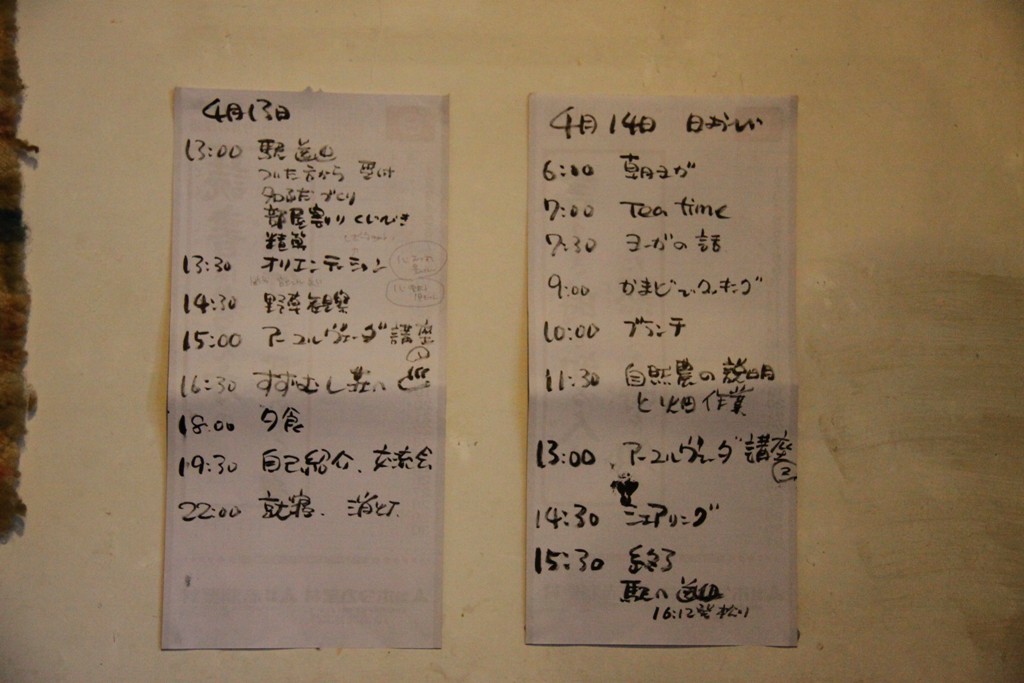 4月13日
13:00 駅送迎
ついた方から 受付
名ふだづくり
部屋割り くじびき
精算
13:30 オリエンテーション
14:30 野草観察
15:00 アーユルヴェーダ講座
①
16:30 すずむし荘へ
18:00 夕食
19:30 自己紹介、交流会
22:00 就寝、消灯
4月14日
6:00 朝ヨガ
7:00 Tea time
7:30 ヨーガの話
9:00 かまどでクッキング
10:00 ブランチ
11:30 自然農の説明
と畑作業
13:00 アーユルヴェーダ講座
②
14:30 シェアリング
15:30 終了
駅へ送迎
16:12発